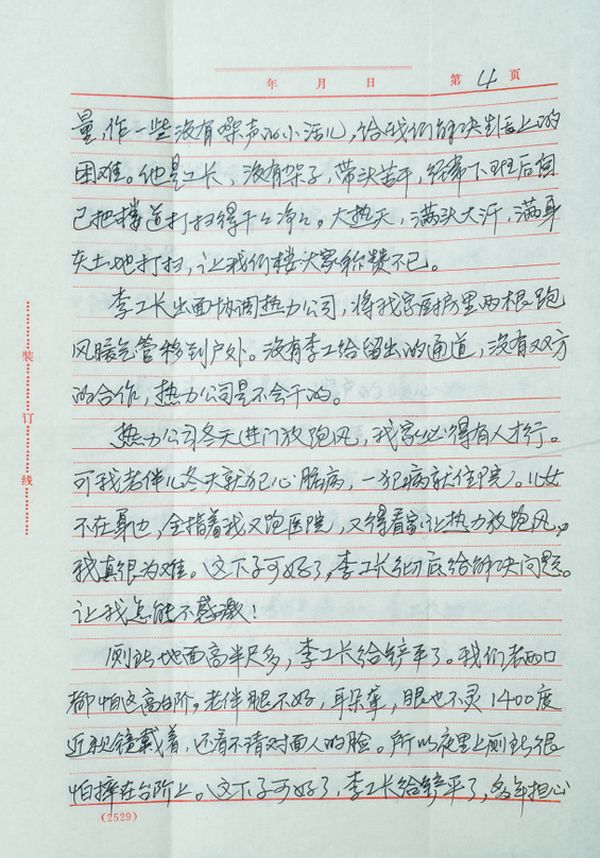 年 月 日 第 4 页
量,作一些没有噪声的小活儿,给我们解决封后上的
困难。他是工长,没有架子,带头苦干,经常下班后自
己把楼道打扫得干干净净。大热天,满头大汗,满身
灰土地打扫,让我们楼大家称赞不已。
李工长出面协调热力公司,将我家厨房里两根跑
风暖气管移到户外。没有李工给留出的通道,没有双方
的合作,热力公司是不会干的。
热力公司冬天进门放跑风,我家必得有人才行。
可我老伴儿冬天就犯心脑病,一犯病就住院。儿女
不在身边,全指着我又跑医院,又得看家让热力放跑风,
我真很为难。这下子可好了,李工长彻底给解决问题。
让我怎能不感激!
厕所地面高半尺多,李工长给铲平了。我们老两口
都怕这高台阶。老伴腿不好,耳朵聋,眼也不灵1400度
近视镜戴着,还看不清对面人的脸。所以夜里上厕所很
怕摔在台阶上。这下子可好了,李工长给铲平了,多年担心
装
订
线
(2529)